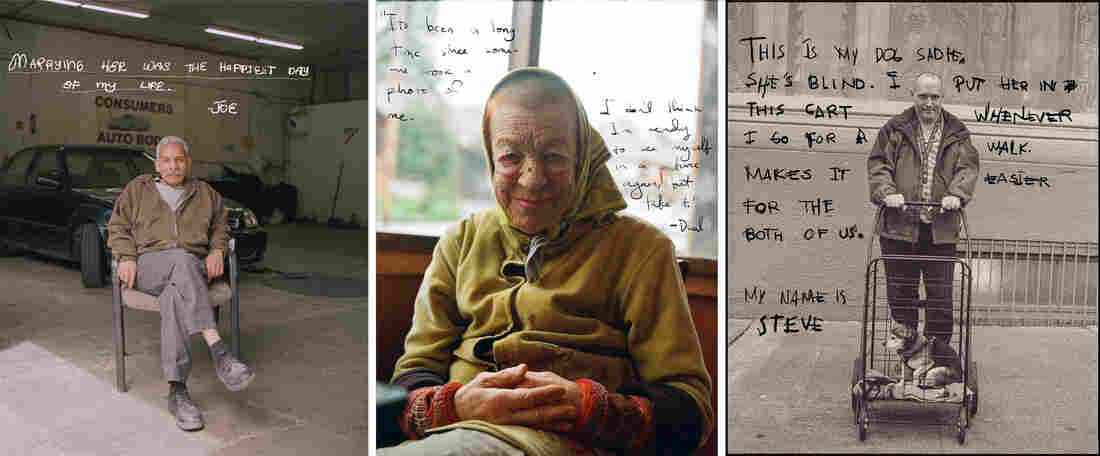 MARRYING HER WAS THE HAPPIEST DAY
OF MY LIFE.
-JOE
CONSUMERS
AUTO BOD
"It's been a long
time since some-
one took a
photo of
me.
I don't think
I'm ready
to see myself
in a
again, but
take it!
THIS IS MY DOG SADIE.
SHE'S BLIND. I PUT HER IN
THIS CART WHENEVER
I GO FOR A WALK.
MAKES IT EASIER
FOR THE
BOTH OF US.
MY NAME IS
STEVE